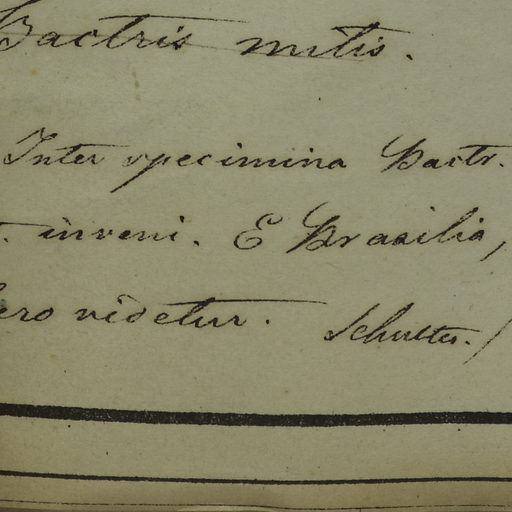 Bactris mitis.
Inter specimina Bactr.
inveni. E Brasilia,
videtur. Schultes.